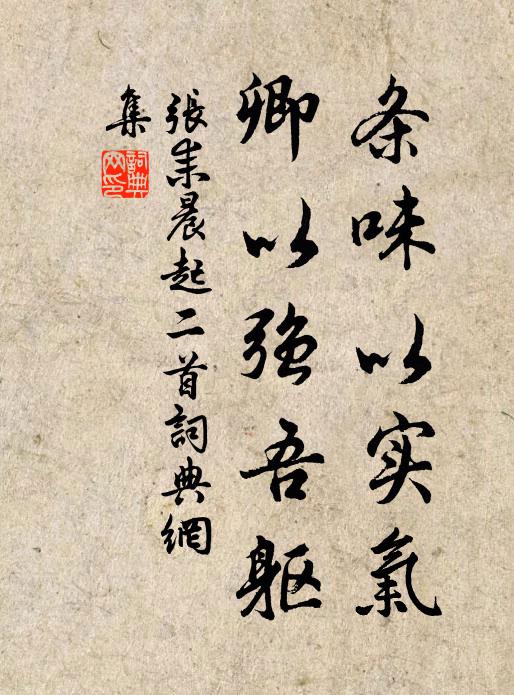 条味以实氣
卿以強吾躯
張耒晨起二首詞典網
集
詞典網印